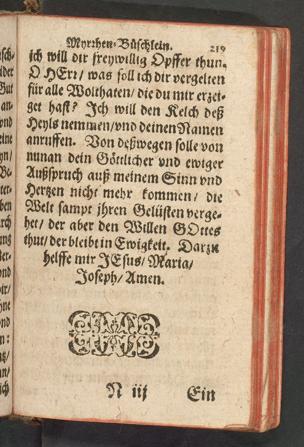 Myrrhen-Büschlein. 219
ich will dir freywillig Opffer thun.
O HErr / was soll ich dir vergelten
für alle Wolthaten / die du mir erzei-
get hast? Ich will den Kelch deß
Heyls nemmen / vnd deinen Namen
anruffen. Von deßwegen solle von
nunan dein Göttlicher vnd ewiger
Außspruch auß meinem Sinn vnd
Hertzen nicht mehr kommen / die
Welt sampt jhren Gelüsten verge-
het / der aber den Willen GOttes
thut / der bleibt in Ewigkeit. Darzu
helffe mir JEsus / Maria /
Joseph / Amen.
N iij Ein